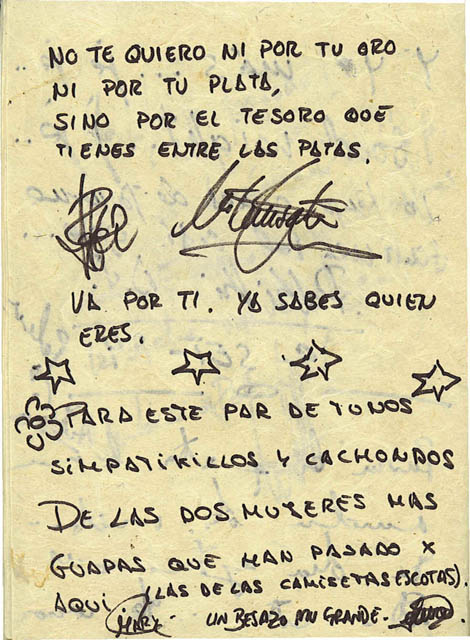 NO TE QUIERO NI POR TU ORO
NI POR TU PLATA,
SINO POR EL TESORO QUE
TIENES ENTRE LAS PATAS.
VA POR TI. YA SABES QUIEN
ERES.
PARA ESTE PAR DE TUNOS
SIMPATIKILLOS Y CACHONDOS
DE LAS DOS MUXERES MAS
GUAPAS QUE HAN PASADO X
AQUI (LAS DE LAS CAMISETAS ESCOTAS).
MARY UN BESAZO MU GRANDE.